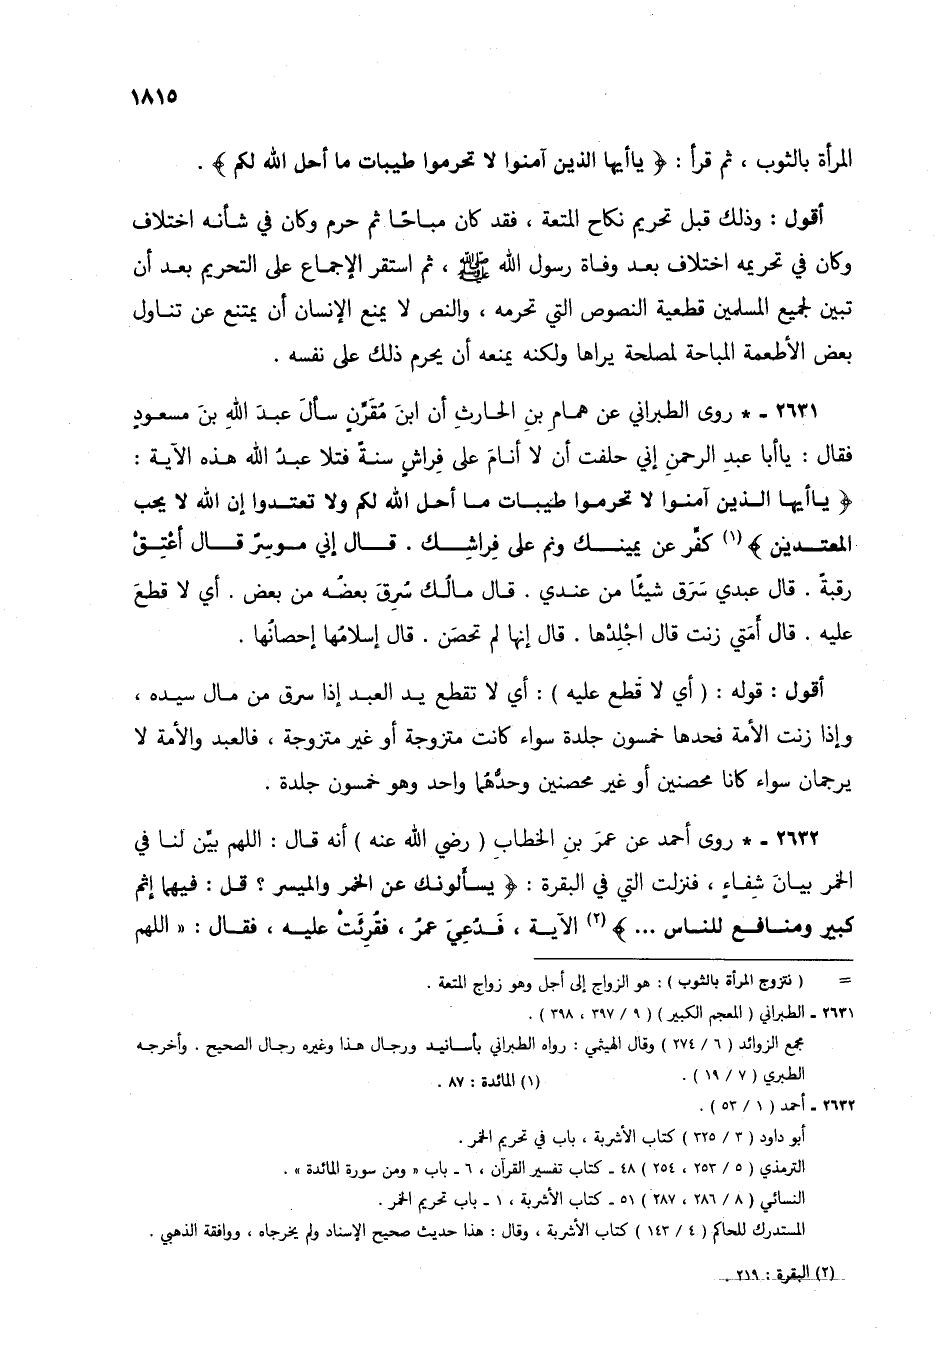 ١٨١٥
المرأة بالثوب ، ثم قرأ : ﴿ ياأيها الذين آمنوا لا تحرموا طيبات ما أحل الله لكم ﴾ .
أقول : وذلك قبل تحريم نكاح المتعة ، فقد كان مباحًا ثم حرم وكان في شأنه اختلاف
وكان في تحريمه اختلاف بعد وفاة رسول الله ﷺ ، ثم استقر الإجماع على التحريم بعد أن
تبين لجميع المسلمين قطعية النصوص التي تحرمه ، والنص لا يمنع الإنسان أن يمتنع عن تناول
بعض الأطعمة المباحة لمصلحة يراها ولكنه يمنعه أن يحرم ذلك على نفسه .
٢٦٣١ - * روى الطبراني عن همامِ بنِ الحارثِ أن ابنَ مُقَرِّنٍ سألَ عبدَ اللهِ بنَ مسعودٍ
فقال : ياأبا عبدِ الرحمنِ إني حلفت أن لا أنامَ على فِراشٍ سنةً فتلا عبدُ الله هذه الآية :
﴿ ياأيها الذين آمنوا لا تحرموا طيبات ما أحل الله لكم ولا تعتدوا إن الله لا يحب
المعتدين ﴾ (١) كفِّر عن يمينك ونم على فِراشِك . قال إني موسِرٌ قال أعْتِقْ
رقبةً . قال عبدي سَرَق شيئًا من عندي . قال مالُك سُرِقَ بعضُه من بعض . أي لا قطعَ
عليه . قال أَمَتي زنت قال اجْلِدْها . قال إنها لم تحصَن . قال إسلامُها إحصانُها .
أقول : قوله : ( أي لا قَطع عليه ) : أي لا تقطع يد العبد إذا سرق من مال سيده ،
وإذا زنت الأمة فحدها خمسون جلدة سواء كانت متزوجة أو غير متزوجة ، فالعبد والأمة لا
يرجمان سواء كانا محصنين أو غير محصنين وحدُّهُما واحد وهو خمسون جلدة .
٢٦٣٢ - * روى أحمد عن عمرَ بنِ الخطابِ ( رضي الله عنه ) أنه قال : اللهم بيِّن لنا في
الخمر بيانَ شِفاءٍ ، فنزلت التي في البقرة : ﴿ يسألونك عن الخمر والميسر ؟ قل : فيهما إثم
كبير ومنافع للناس ... ﴾ (٢) الآية ، فَدُعِيَ عمرُ ، فقُرِئَتْ عليه ، فقال : « اللهم
= ( نتزوج المرأة بالثوب ) : هو الزواج إلى أجل وهو زواج المتعة .
٢٦٣١ - الطبراني ( المعجم الكبير ) ( ٩ / ٣٩٧ ، ٣٩٨ ) .
مجمع الزوائد ( ٦ / ٢٧٤ ) وقال الهيثمي : رواه الطبراني بأسانيد ورجال هذا وغيره رجال الصحيح . وأخرجه
الطبري ( ٧ / ١٩ ) . (١) المائدة : ٨٧ .
٢٦٣٢ - أحمد ( ١ / ٥٣ ) .
أبو داود ( ٣ / ٣٢٥ ) كتاب الأشربة ، باب في تحريم الخمر .
الترمذي ( ٥ / ٢٥٣ ، ٢٥٤ ) ٤٨ - كتاب تفسير القرآن ، ٦ - باب « ومن سورة المائدة » .
النسائي ( ٨ / ٢٨٦ ، ٢٨٧ ) ٥١ - كتاب الأشربة ، ١ - باب تحريم الخمر .
المستدرك للحاكم ( ٤ / ١٤٣ ) كتاب الأشربة ، وقال : هذا حديث صحيح الإسناد ولم يخرجاه ، ووافقة الذهبي .
(٢) البقرة : ٢١٩ .